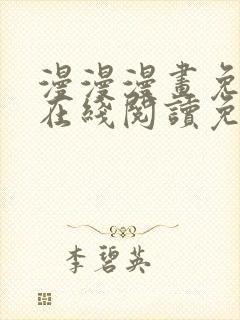 漫漫漫畫免
在綫閱讀免
李碧英